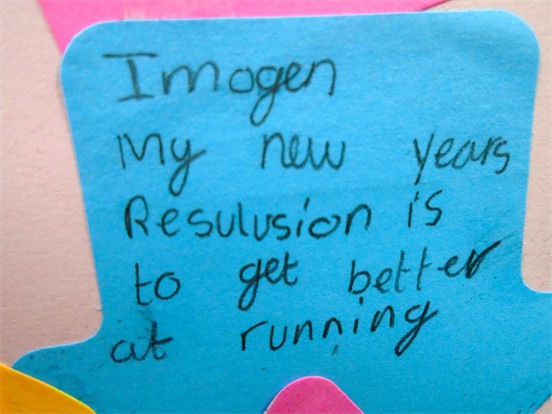 Imogen
My new years
Resulusion is
to get better
at running